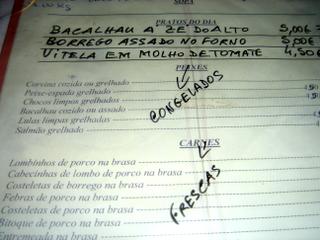 SOPA
PRATOS DO DIA
BACALHAU A ZÉ DO ALTO 5,00€
BORREGO ASSADO NO FORNO 5,00€
VITELA EM MOLHO DE TOMATE 4,50€
PEIXES
Corvina cozida ou grelhado
Peixe-espada grelhado
Chocos limpos grelhado
Bacalhau cozido ou assado
Lulas limpas grelhado
Salmão grelhado
CONGELADOS
CARNES
Lombinhos de porco na brasa
Cabecinhas de lombo de porco na brasa
Costeletas de borrego na brasa
Febras de porco na brasa
Costeletas de porco na brasa
Bitoque de porco na brasa
Entremeada na brasa
FRESCAS